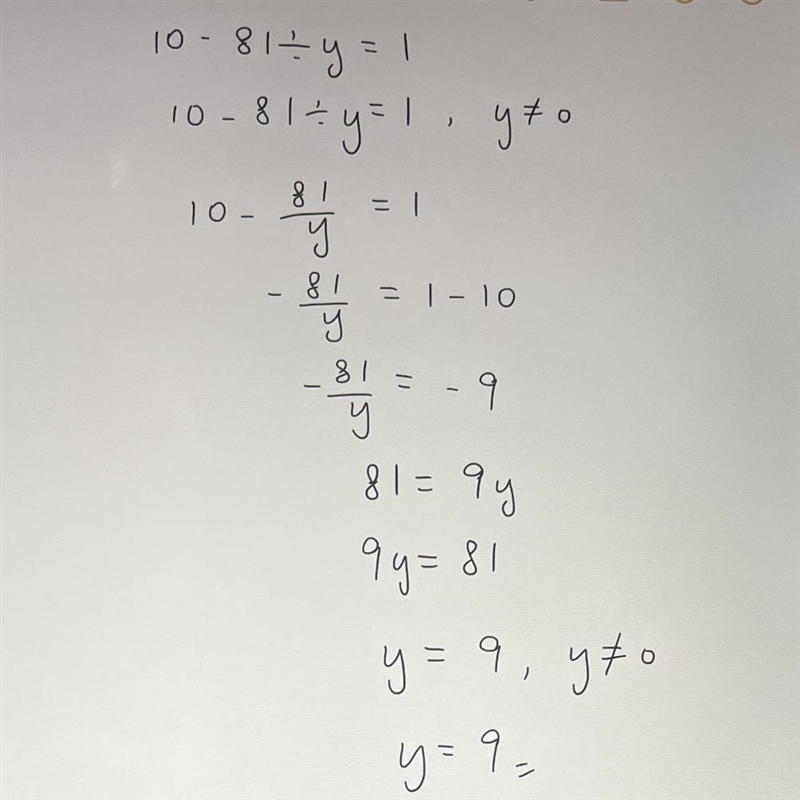 10 - 81 ÷ y = 1
10 - 81 ÷ y = 1 , y ≠ 0
10 - 81/y = 1
- 81/y = 1 - 10
- 81/y = - 9
81 = 9y
9y = 81
y = 9 , y ≠ 0
y = 9 =